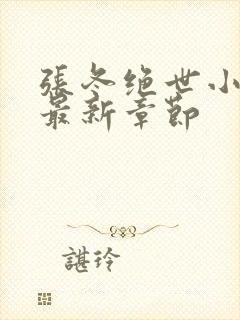 張冬绝世小
最新章節
諶玲